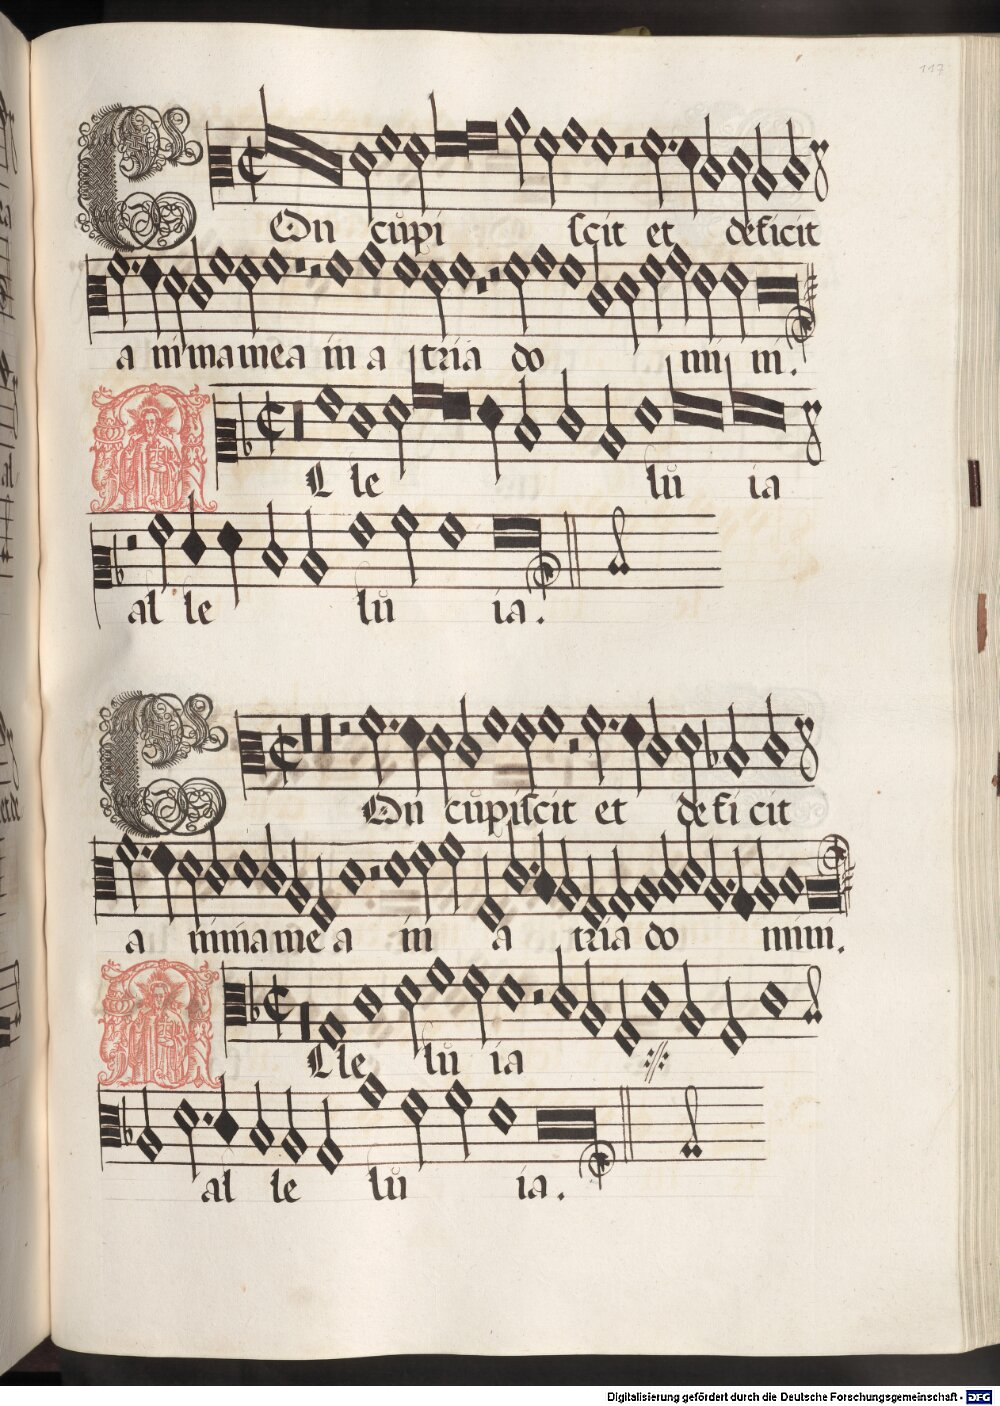 117
COn cupi scit et deficit
a nima mea in a tria do mi ni.
ALle lu ia
al le lu ia.
COn cupiscit et defi cit
a nima me a in a tria do mini.
ALle lu ia
al le lu ia.
Digitalisierung gefördert durch die Deutsche Forschungsgemeinschaft - DFG